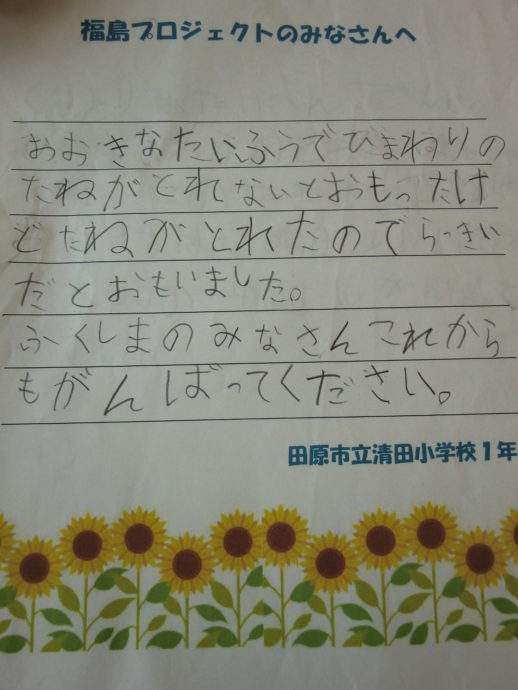 福島プロジェクトのみなさんへ
おおきなたいふうでひまわりの
たねがとれないとおもったけ
どたねがとれたのでらっきい
だとおもいました。
ふくしまのみなさんこれから
もがんばってください。
田原市立清田小学校1年